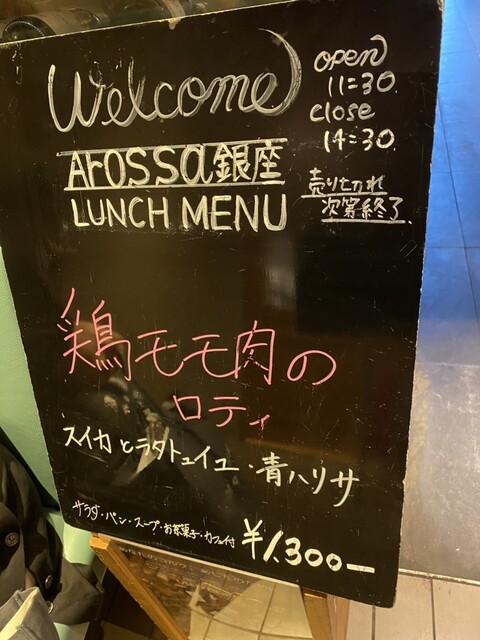 Welcome
open
11:30
close
14:30
Arossa銀座
LUNCH MENU
売り切れ
次第終了
鶏モモ肉の
ロティ
スイカとラタトュイユ・青ハリサ
サラダ・パン・スープ・お茶菓子・カフェ付
¥1,300ー